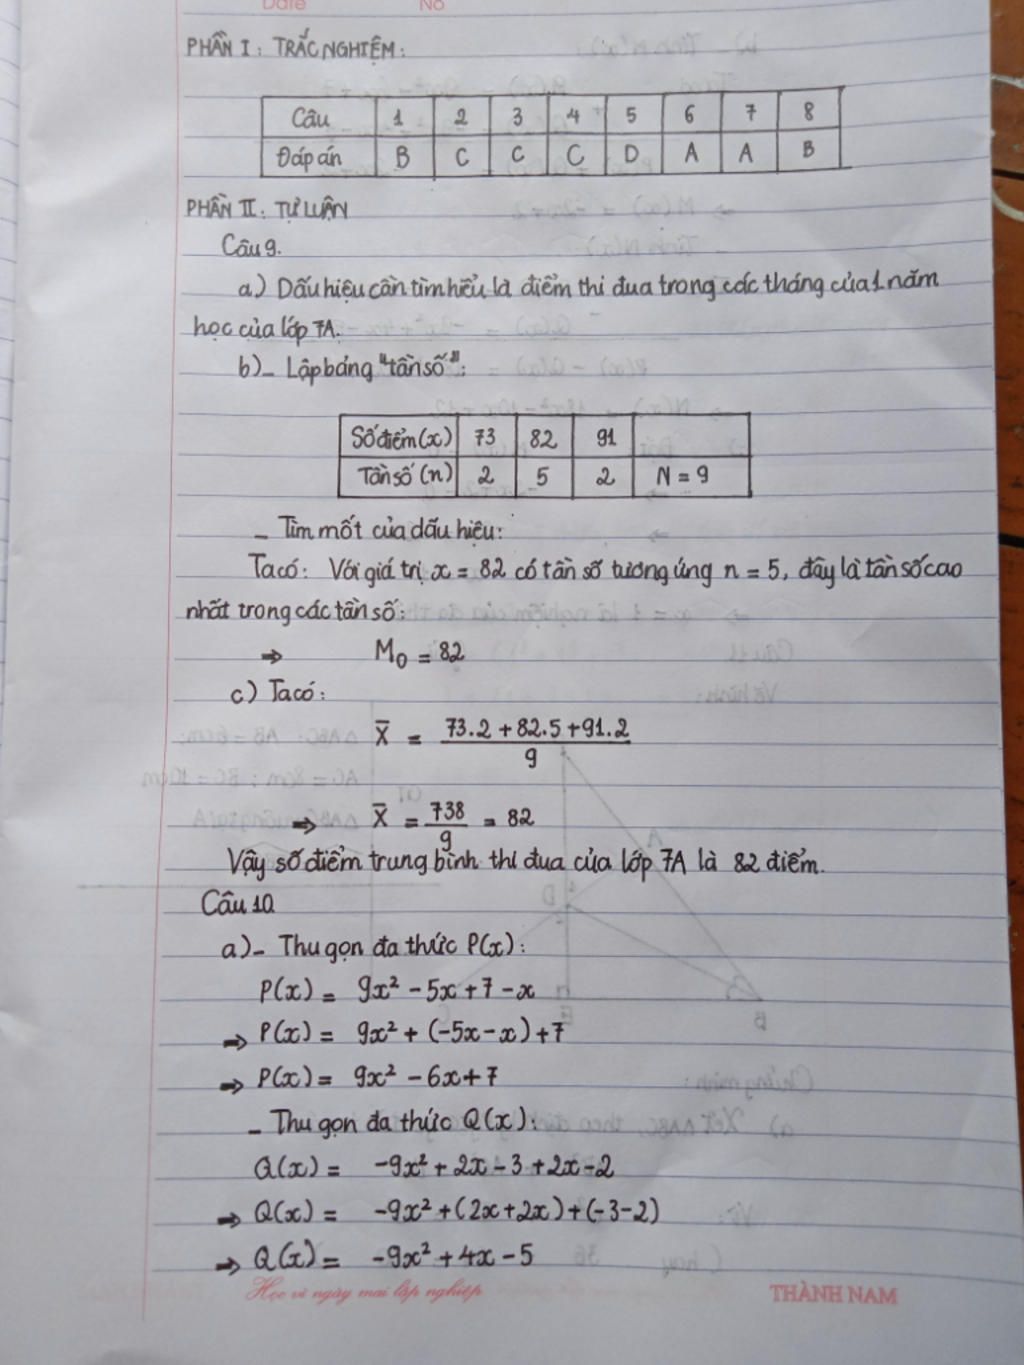 Date No
PHẦN I: TRẮC NGHIỆM:
Câu 1 2 3 4 5 6 7 8
Đáp án B C C C D A A B
PHẦN II: TỰ LUẬN
Câu 9.
a) Dấu hiệu cần tìm hiểu là điểm thi đua trong các tháng của 1 năm
học của lớp 7A.
b) - Lập bảng "tần số":
Số điểm (x) 73 82 91
Tần số (n) 2 5 2 N = 9
- Tìm mốt của dấu hiệu:
Ta có: Với giá trị x = 82 có tần số tương ứng n = 5, đây là tần số cao
nhất trong các tần số:
⇒ M₀ = 82
c) Ta có:
X̅ = (73.2 + 82.5 + 91.2)/9
⇒ X̅ = 738/9 = 82
Vậy số điểm trung bình thi đua của lớp 7A là 82 điểm.
Câu 10
a) - Thu gọn đa thức P(x):
P(x) = 9x² - 5x + 7 - x
⇒ P(x) = 9x² + (-5x - x) + 7
⇒ P(x) = 9x² - 6x + 7
- Thu gọn đa thức Q(x):
Q(x) = -9x² + 2x - 3 + 2x - 2
⇒ Q(x) = -9x² + (2x + 2x) + (-3 - 2)
⇒ Q(x) = -9x² + 4x - 5
Học vì ngày mai lập nghiệp THÀNH NAM